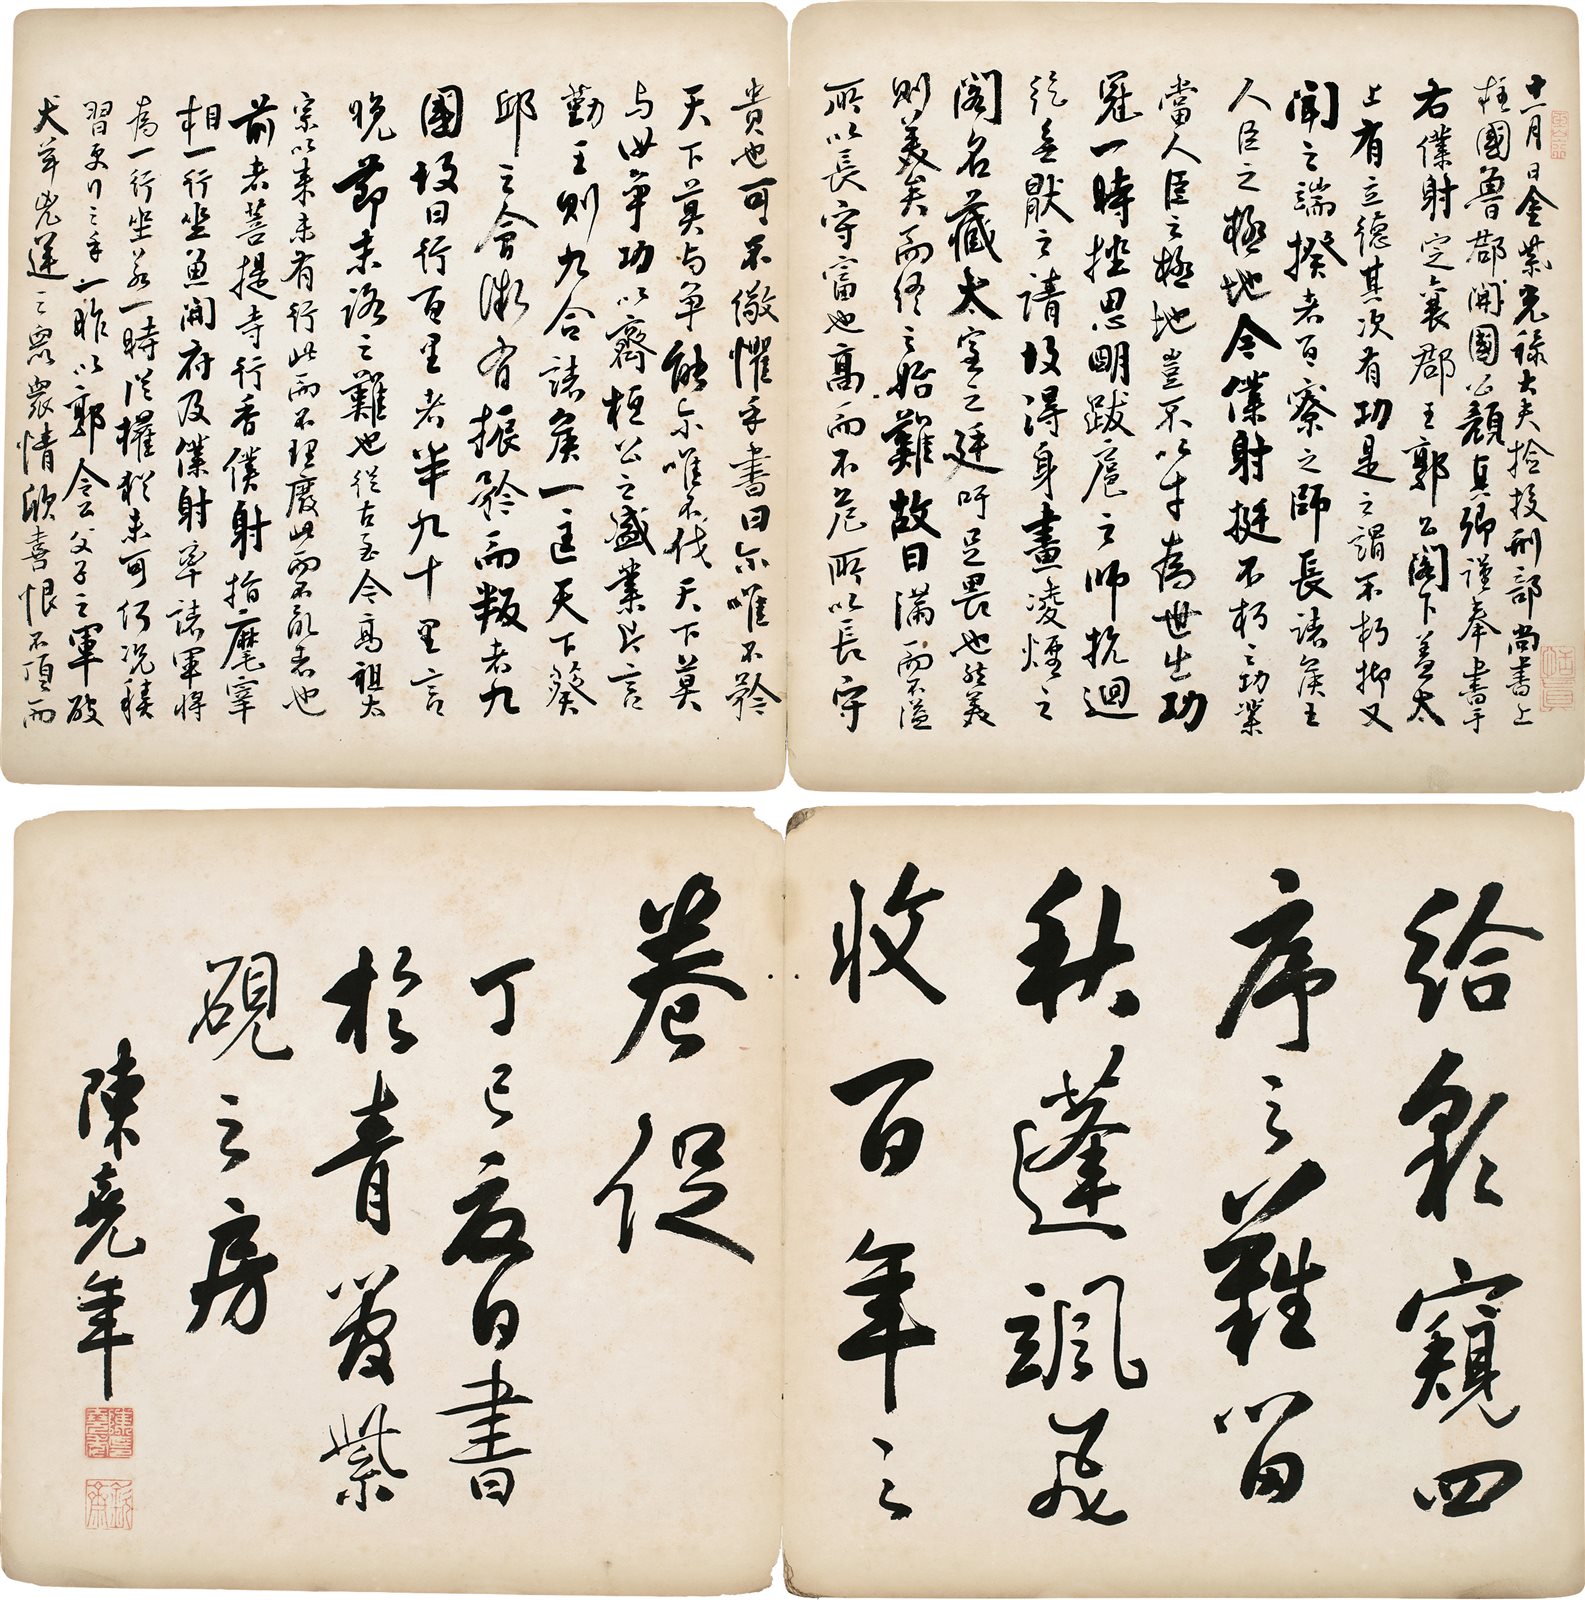 十一月日金紫光祿大夫撿挍刑部尚書上
柱國魯郡開國公顏真卿謹奉書于
右僕射定襄郡王郭公閣下盖太
上有立德其次有功是之謂不朽抑又
聞之端揆者百寮之師長諸侯王
人臣之極地今僕射挺不朽之功業
當人臣之極地豈不以才為世出功
冠一時挫思明跋扈之師抗迴
紇無猒之請故得身畫凌煙之
閣名藏太室之廷吁足畏也然美
則美矣而終之始難故曰滿而不溢
所以長守富也高而不危所以長守
貴也可不儆懼乎書曰尔唯不矜
天下莫与爭能尔唯不伐天下莫
与汝爭功以齊桓公之盛業片言
勤王則九合諸侯一匡天下葵
邱之會微有振矜而叛者九
國故曰行百里者半九十里言
晚節末路之難也從古至今高祖太
宗以來未有行此而不理廢此而不亂者也
前者菩提寺行香僕射指麾宰
相一行坐魚開府及僕射率諸軍將
為一行坐若一時從權猶未可何況積
習更行之乎一昨以郭令公父子之軍破
犬羊兇逆之眾眾情欣喜恨不頂而
給窺四
序之難留
秋蓬颯飛
收百年之
卷促
丁巳夏日書
於青紫
硯之房
陳堯年